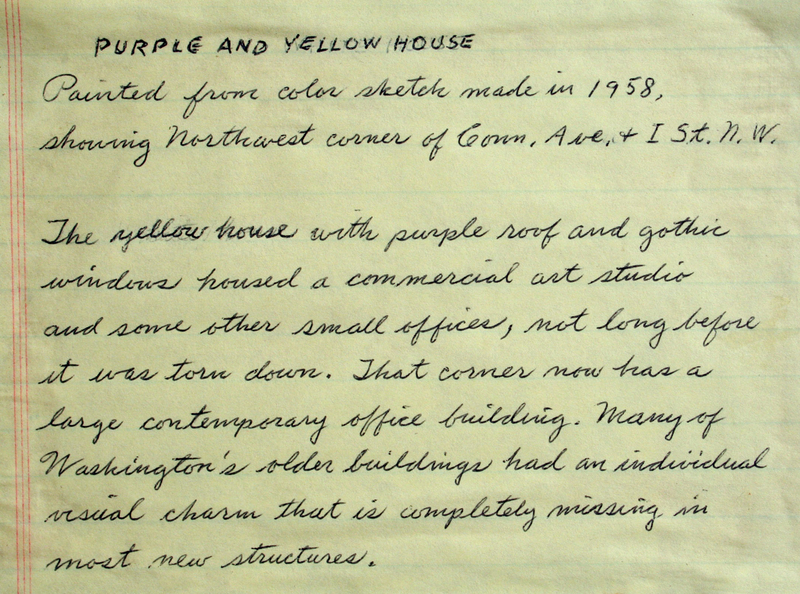 PURPLE AND YELLOW HOUSE
Painted from color sketch made in 1958,
showing Northwest corner of Conn. Ave. & I St. N. W.
The yellow house with purple roof and gothic
windows housed a commercial art studio
and some other small offices, not long before
it was torn down. That corner now has a
large contemporary office building. Many of
Washington's older buildings had an individual
visual charm that is completely missing in
most new structures.